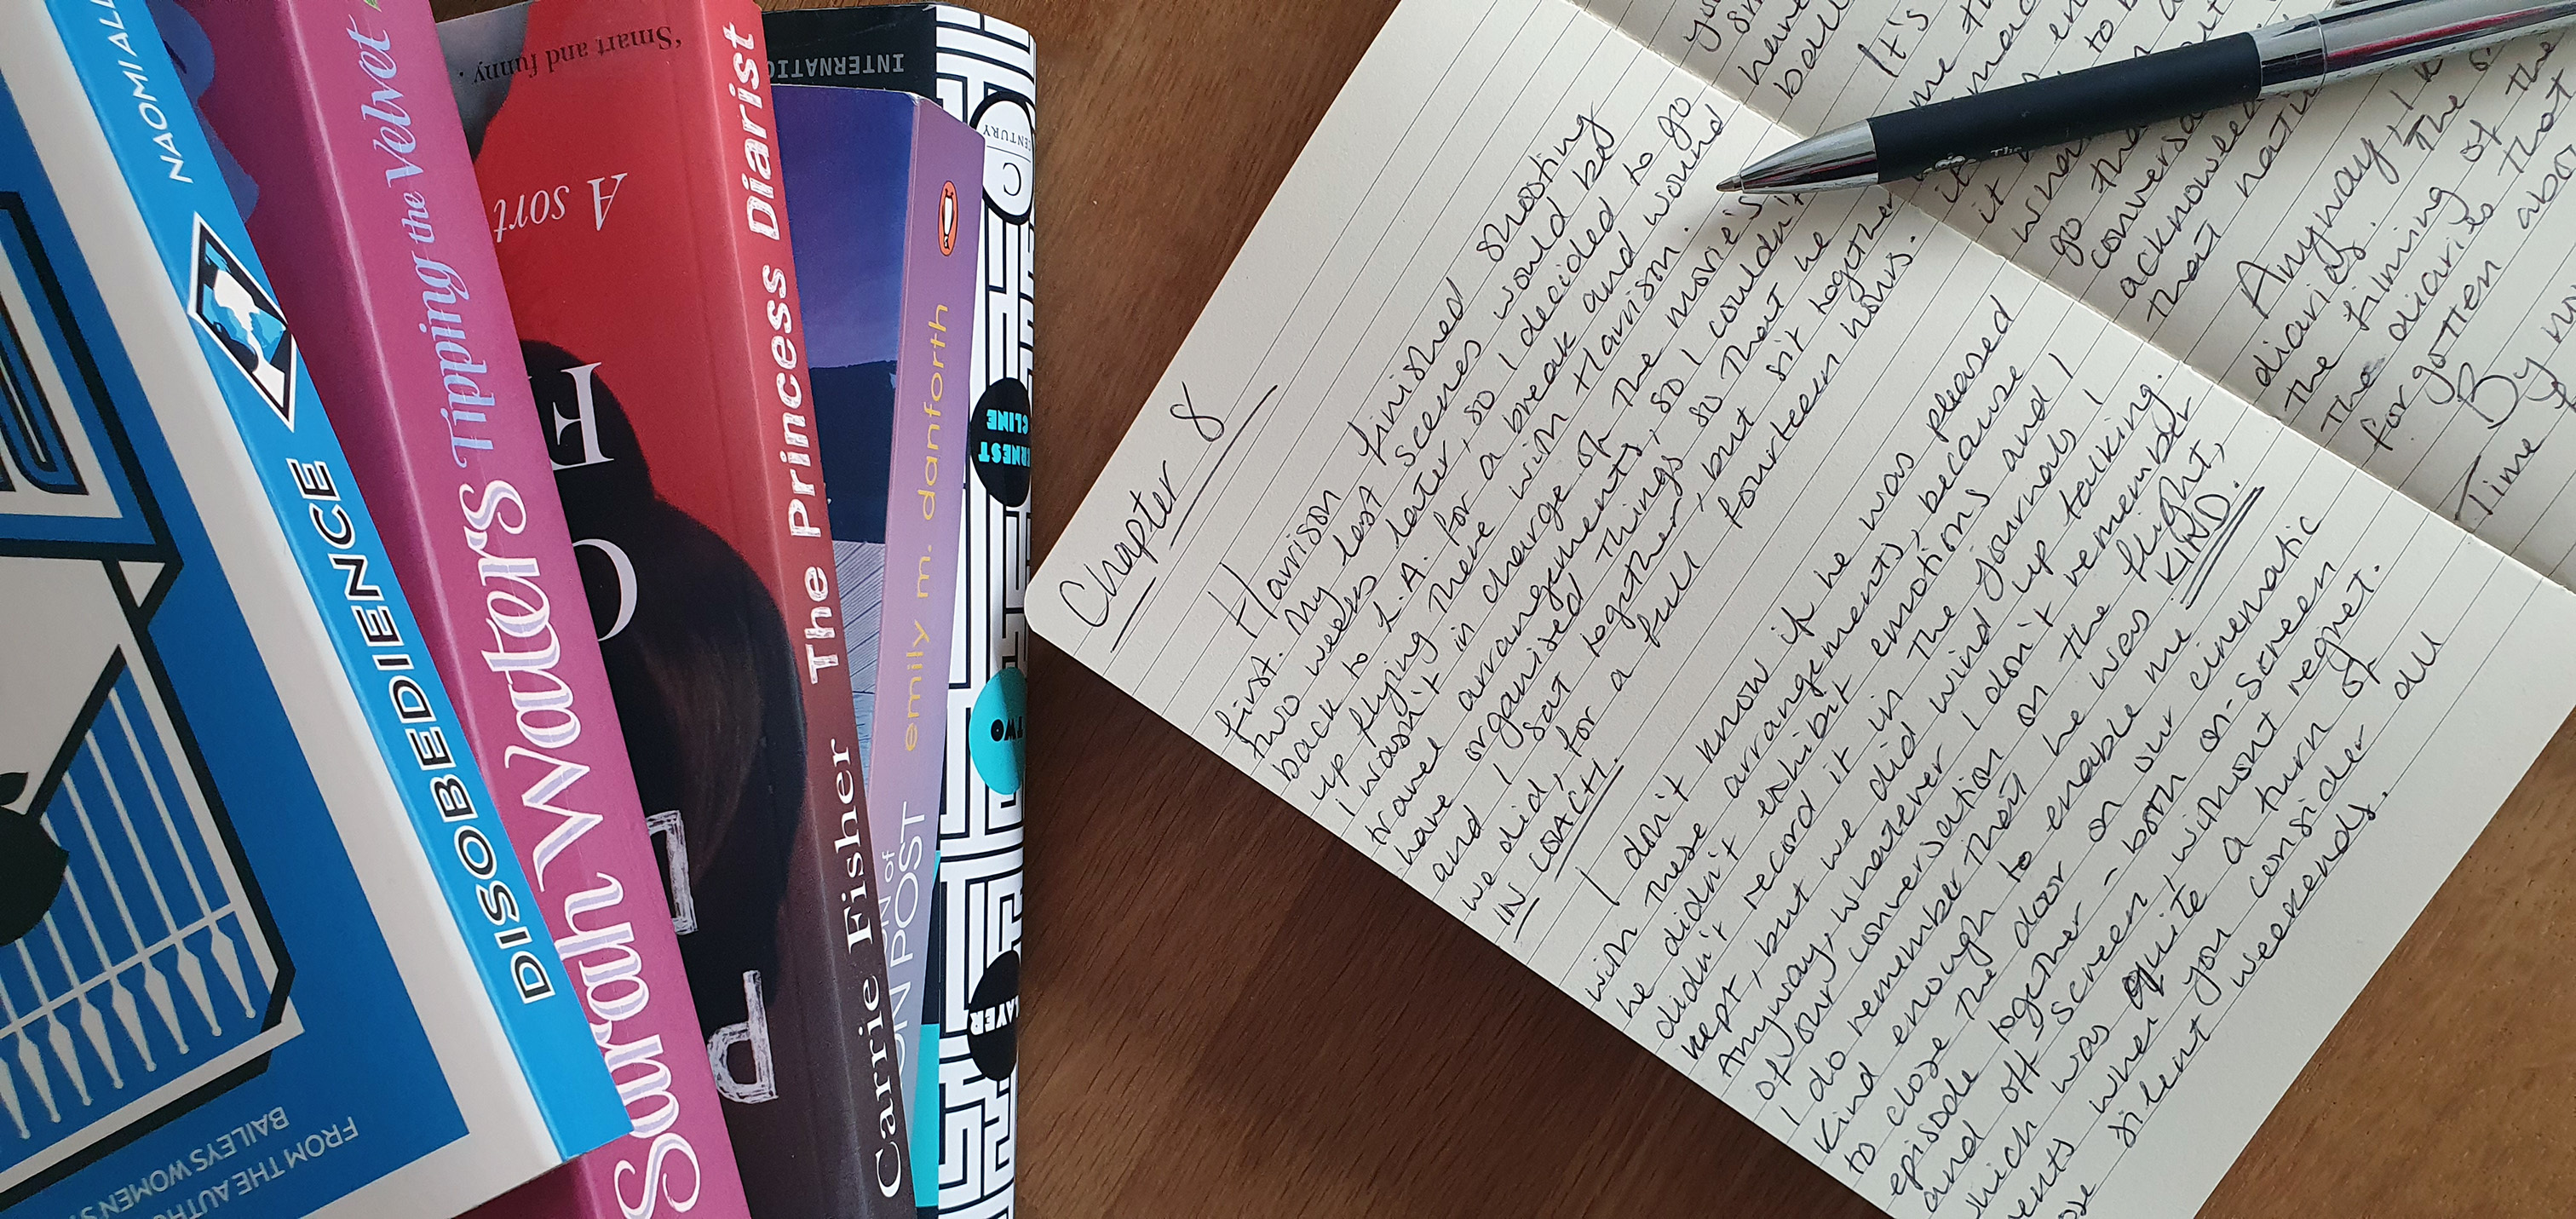 NAOMI
DISOBEDIENCE
FROM THE
BAILEYS WOMEN'S
Sarah Waters Tipping the Velvet
'Smart and funny'
A sort
Carrie Fisher The Princess Diarist
emily m. danforth
ON POST
INTERNATIO
CENTURY
ERNEST
CLINE
TWO
LAYER
Chapter 8
Harrison finished shooting
first. My last scenes would be
two weeks later, so I decided to go
back to L.A. for a break and wound
up flying there with Harrison.
I wasn't in charge of the movie's
travel arrangements, so I couldn't
have organised things so that he
and I sat together, but sit together
we did, for a full fourteen hours.
IN COACH.
I don't know if he was pleased
with these arrangements, because
he didn't exhibit emotions and I
didn't record it in the journals I
kept, but we did wind up talking.
Anyway, whatever I don't remember
of our conversation on the flight,
I do remember that he was KIND.
Kind enough to enable me
to close the door on our cinematic
episode together - both on-screen
and off-screen, without regret.
which was quite a turn of
ents when you consider all
ose silent weekends.
It's
go tha
conversa
acknowled
that
Anyway, I k
diaries. The
the filming of the
the diaries that
forgotten abo
By
Time